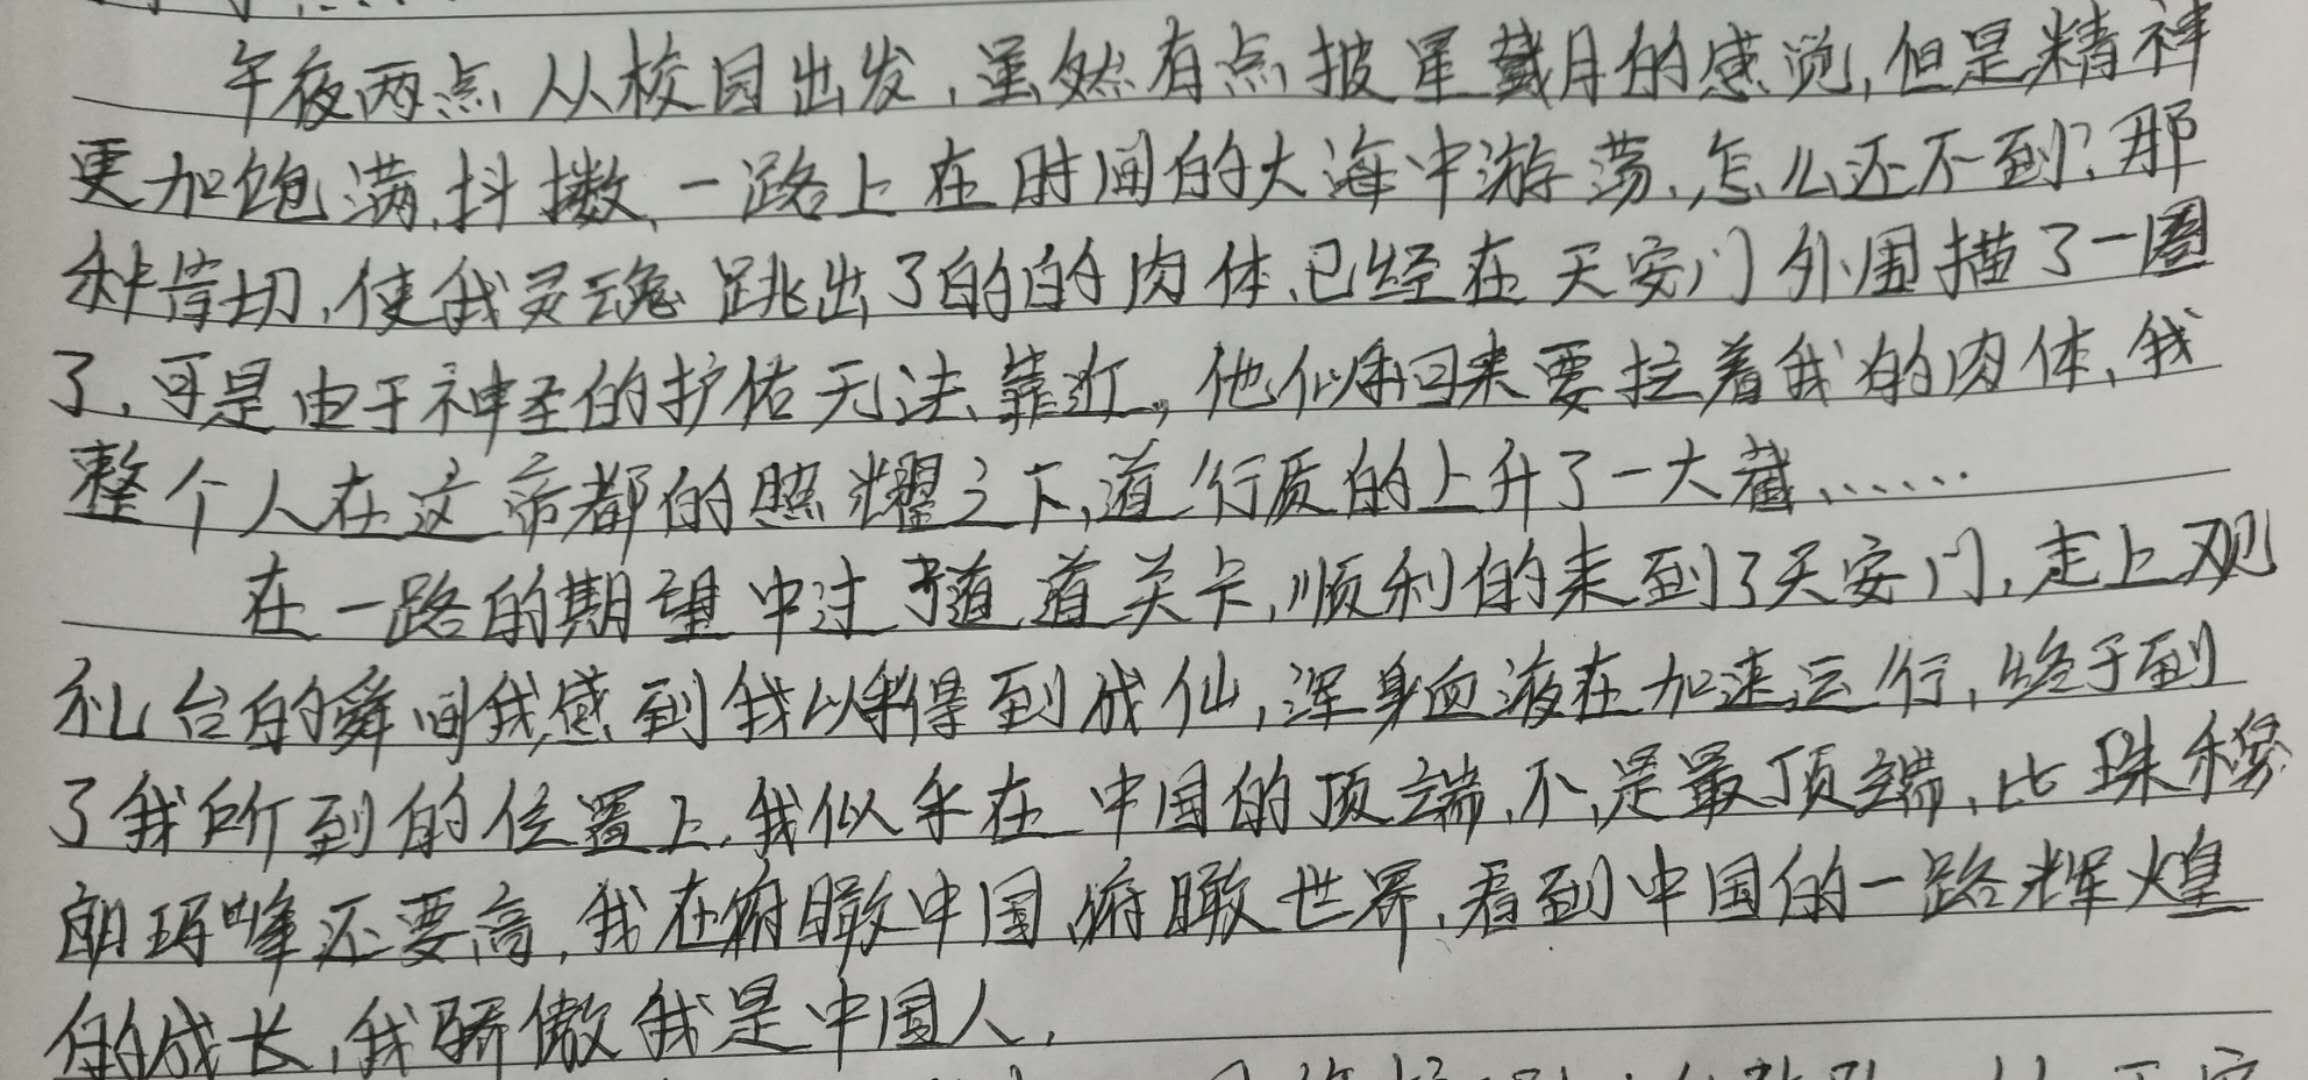 午夜两点从校园出发,虽然有点披星戴月的感觉,但是精神
更加饱满,抖擞,一路上在时间的大海中游荡,怎么还不到?那
种肯切,使我灵魂跳出了的的肉体,已经在天安门外围描了一圈
了,可是由于神圣的护佑无法靠近,他似乎回来要拉着我的肉体,我
整个人在这帝都的照耀之下,道行质的上升了一大截……
在一路的期望中过了道道关卡,顺利的来到了天安门,走上观
礼台的瞬间我感到我以乎得到成仙,浑身血液在加速运行,终于到
了我所到的位置上,我似乎在中国的顶端,不,是最顶端,比珠穆
朗玛峰还要高,我在俯瞰中国,俯瞰世界,看到中国的一路辉煌
的成长,我骄傲我是中国人,